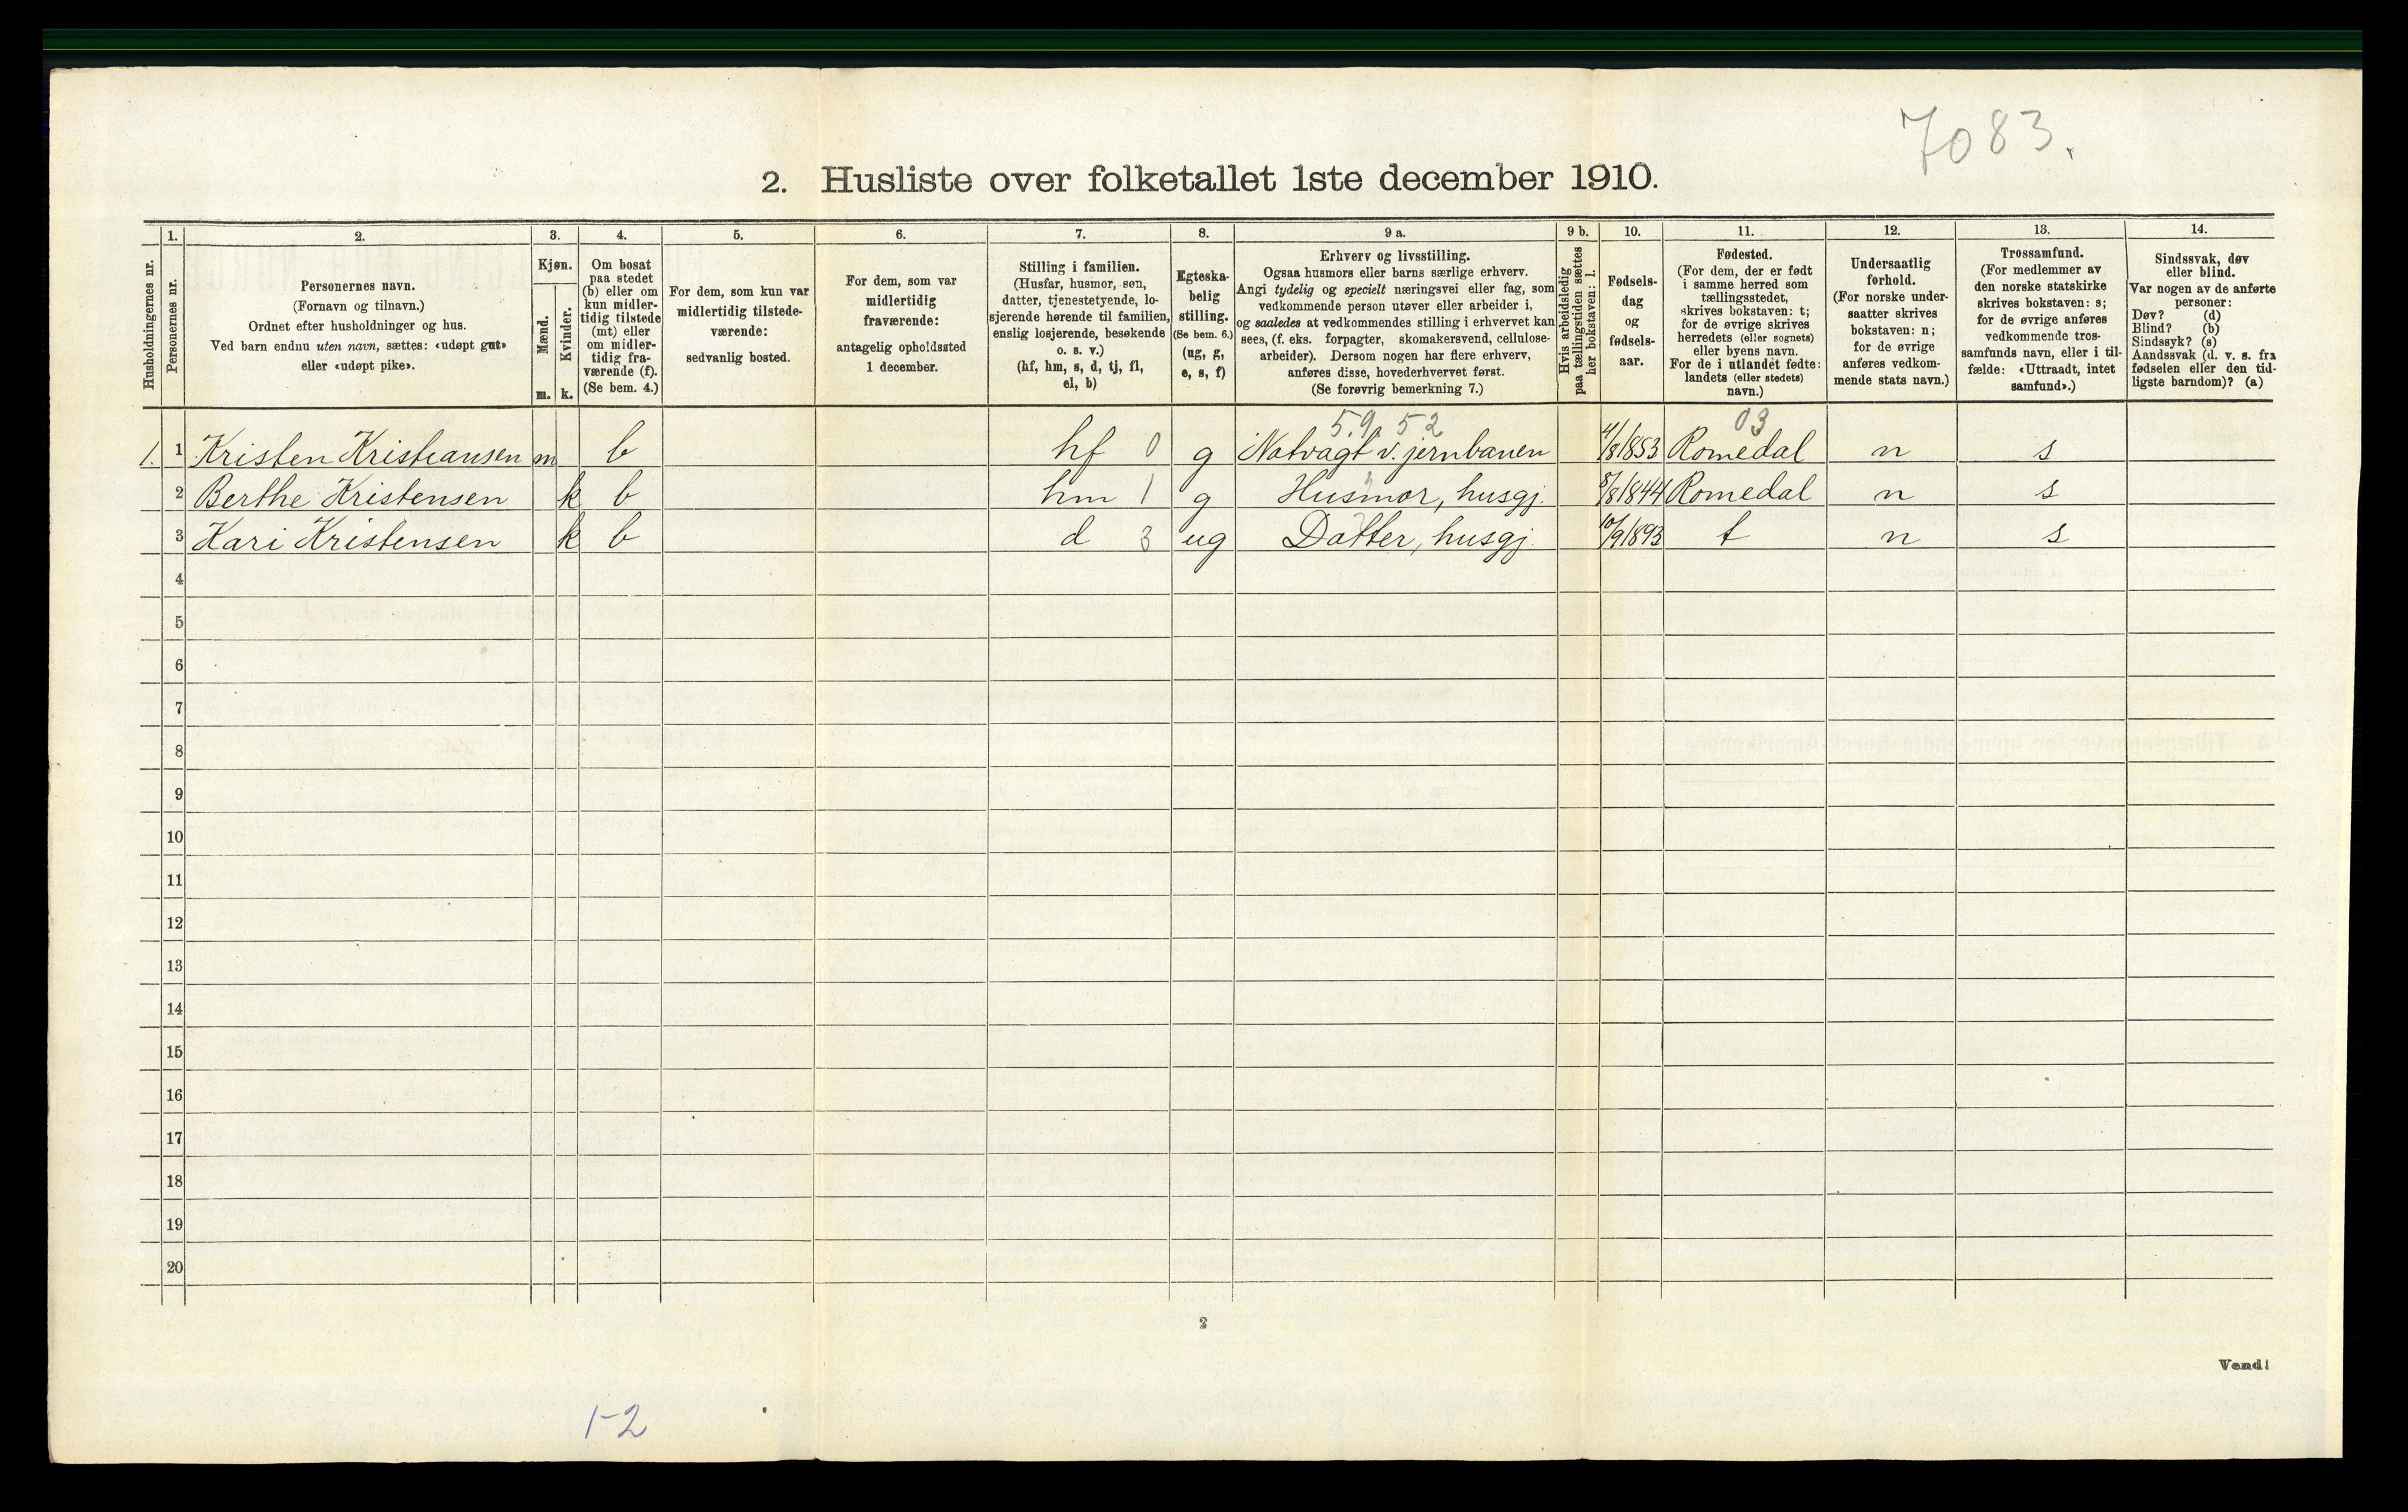 7083.
2. Husliste over folketallet 1ste december 1910.
Husholdningernes nr.
1.
Personernes nr.
2.
Personernes navn.
(Fornavn og tilnavn.)
Ordnet efter husholdninger og hus.
Ved barn endnu uten navn, sættes: «udøpt gut»
eller «udøpt pike».
3.
Kjøn.
Mænd.
Kvinder.
m. k.
4.
Om bosat
paa stedet
(b) eller om
kun midler-
tidig tilstede
(mt) eller
om midler-
tidig fra-
værende (f).
(Se bem. 4.)
5.
For dem, som kun var
midlertidig tilstede-
værende:
sedvanlig bosted.
6.
For dem, som var
midlertidig
fraværende:
antagelig opholdssted
1 december.
7.
Stilling i familien.
(Husfar, husmor, søn,
datter, tjenestetyende, lo-
sjerende hørende til familien,
enslig losjerende, besøkende
o. s. v.)
(hf, hm, s, d, tj, fl,
el, b)
8.
Egteska-
belig
stilling.
(Se bem. 6.)
(ug, g,
e, s, f)
9 a.
Erhverv og livsstilling.
Ogsaa husmors eller barns særlige erhverv.
Angi tydelig og specielt næringsvei eller fag, som
vedkommende person utøver eller arbeider i,
og saaledes at vedkommendes stilling i erhvervet kan
sees, (f. eks. forpagter, skomakersvend, cellulose-
arbeider). Dersom nogen har flere erhverv,
anføres disse, hovederhvervet først.
(Se forøvrig bemerkning 7.)
9 b.
Hvis arbeidsledig
paa tællingstiden sættes
her bokstaven: l.
10.
Fødsels-
dag
og
fødsels-
aar.
11.
Fødested.
(For dem, der er født
i samme herred som
tællingsstedet,
skrives bokstaven: t;
for de øvrige skrives
herredets (eller sognets)
eller byens navn.
For de i utlandet fødte:
landets (eller stedets)
navn.)
12.
Undersaatlig
forhold.
(For norske under-
saatter skrives
bokstaven: n;
for de øvrige
anføres vedkom-
mende stats navn.)
13.
Trossamfund.
(For medlemmer av
den norske statskirke
skrives bokstaven: s;
for de øvrige anføres
vedkommende tros-
samfunds navn, eller i til-
fælde: «Uttraadt, intet
samfund».)
14.
Sindssvak, døv
eller blind.
Var nogen av de anførte
personer:
Døv? (d)
Blind? (b)
Sindssyk? (s)
Aandssvak (d. v. s. fra
fødselen eller den tid-
ligste barndom)? (a)
5.9 52 03
1. 1 Kristen Kristiansen m b hf 0 g Natvagt v. jernbanen 4/8 1853 Romedal n s
2 Berthe Kristensen k b hm 1 g Husmor, husgj. 8/8 1844 Romedal n s
3 Kari Kristensen k b d 3 ug Datter, husgj. 10/9 1893 t n s
4
5
6
7
8
9
10
11
12
13
14
15
16
17
18
19
20
2
Vend!
1-2